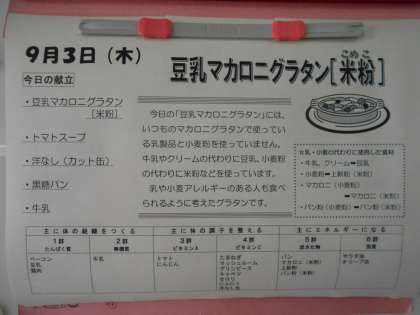 9月3日(木)
今日の献立
豆乳マカロニグラタン[米粉]
こめこ
・豆乳マカロニグラタン
[米粉]
・トマトスープ
・洋なし(カット缶)
・黒糖パン
・牛乳
今日の「豆乳マカロニグラタン」には、
いつものマカロニグラタンで使ってい
る乳製品と小麦粉を使っていません。
牛乳やクリームの代わりに豆乳、小麦粉
の代わりに米粉などを使っています。
乳や小麦アレルギーのある人も食べ
られるように考えたグラタンです。
☆乳・小麦の代わりに使用した食材
・牛乳、クリーム⇒豆乳
・小麦粉⇒上新粉(米粉)
・マカロニ(小麦粉)
⇒マカロニ(米粉)
・パン粉(小麦粉)⇒パン粉(米粉)
主に体の組織をつくる
主に体の調子を整える
主にエネルギーになる
1群 2群 3群 4群 5群 6群
たんぱく質 無機質 ビタミンA ビタミンC 炭水化物 脂質
ベーコン
豆乳
鶏肉
牛乳
トマト
にんじん
たまねぎ
マッシュルーム
グリンピース
キャベツ
セロリ
にんにく
洋なし缶
パン
マカロニ(米粉)
上新粉
パン粉(米粉)
サラダ油
オリーブ油